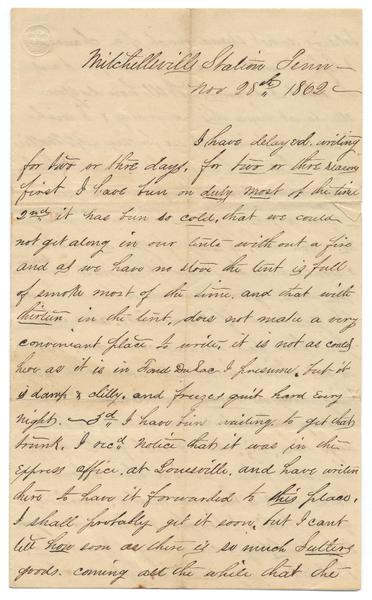 Mitchellville Station Tenn -
Nov 28th 1862
I have delayed writing
for two or thre days. for two or thre reasons
first I have bin on duty most of the time
2nd it has bun so cold, that we could
not get along in our tents with out a fire
and as we have no stove the tent is full
of smoke most of the time. and that with
thirteen in the tent, does not make a very
convenient place to write. it is not as cold
here as it is in Fond Du Lac I presume. but it
is damp & chilly. and freezes quit hard evry
night. - 3d I have bin waiting to get that
trunk. I recd notice that it was in the
Express office. at Louesville. and have writen
there to have it forwarded to this place.
I shall probably get it soon. but I cant
tell how soon as there is so much Sutlers
goods. coming all the while that the